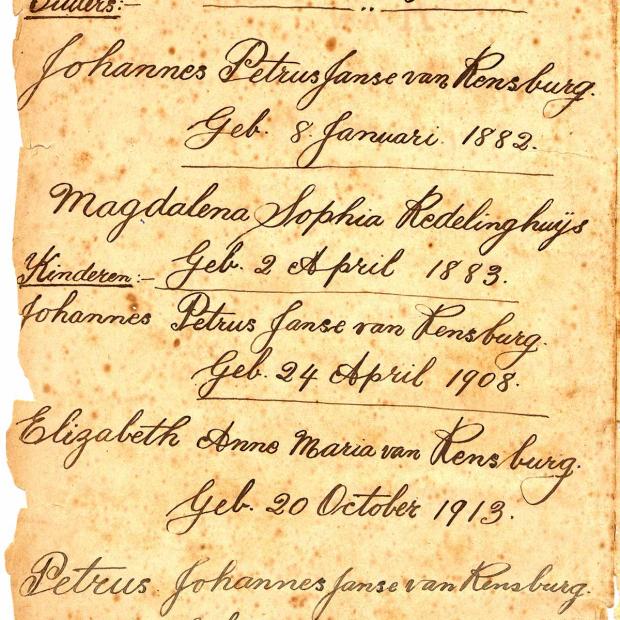 Ouders:-
Johannes Petrus Janse van Rensburg.
Geb. 8 Januari 1882.
Magdalena Sophia Redelinghuÿs
Geb. 2 April 1883.
Kinderen:-
Johannes Petrus Janse van Rensburg.
Geb. 24 April 1908.
Elizabeth Anne Maria van Rensburg.
Geb. 20 October 1913.
Petrus Johannes Janse van Rensburg.